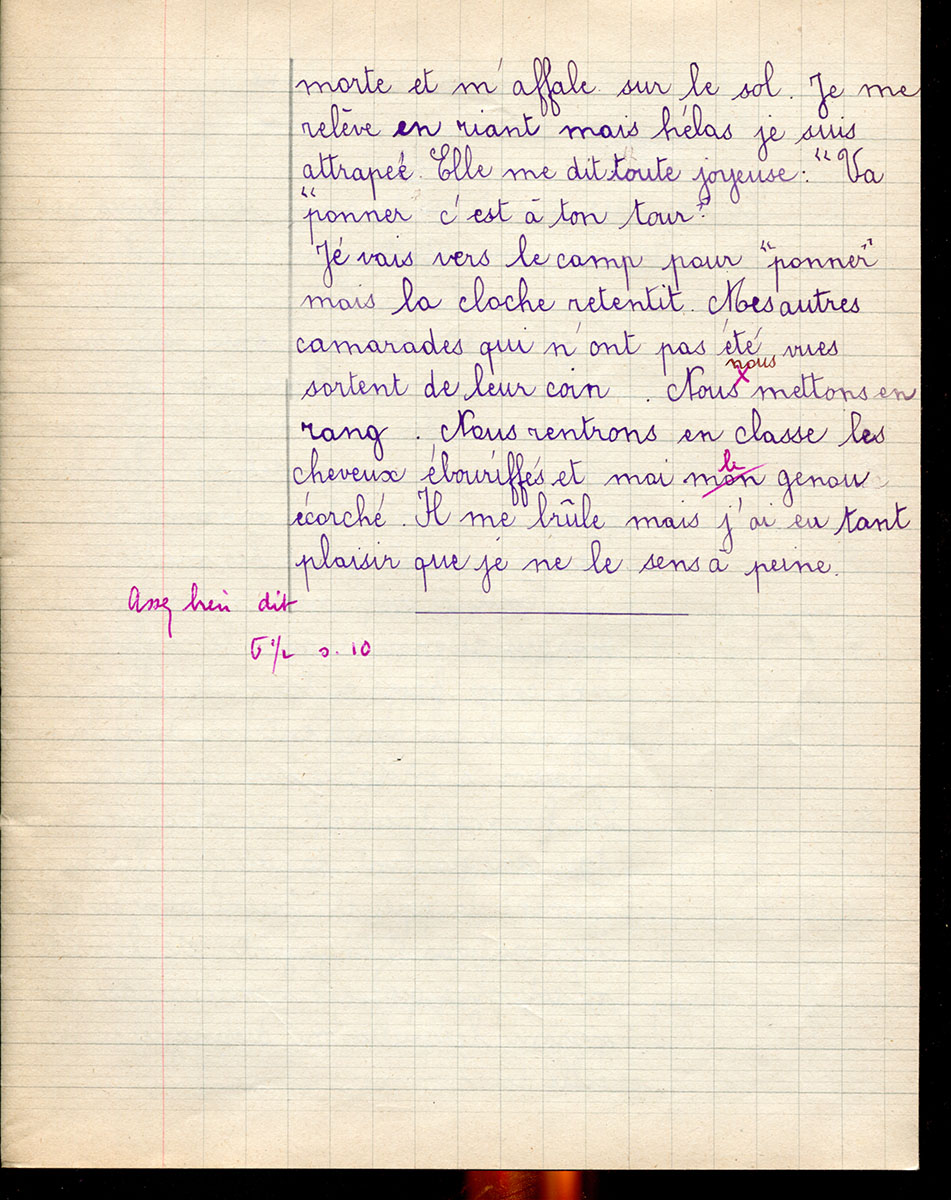 morte et m'affale sur le sol. Je me
relève en riant mais hélas je suis
attrapée. Elle me dit toute joyeuse : "Va
"ponner c'est à ton tour"
Je vais vers le camp pour "ponner"
mais la cloche retentit. Mes autres
camarades qui n'ont pas été vues
nous
sortent de leur coin. Nous x mettons en
rang. Nous rentrons en classe les
le
cheveux ébouriffés et moi mon genou
écorché. Il me brûle mais j'ai eu tant
plaisir que je ne le sens à peine.
Assez bien dit
5 1/2 s. 10